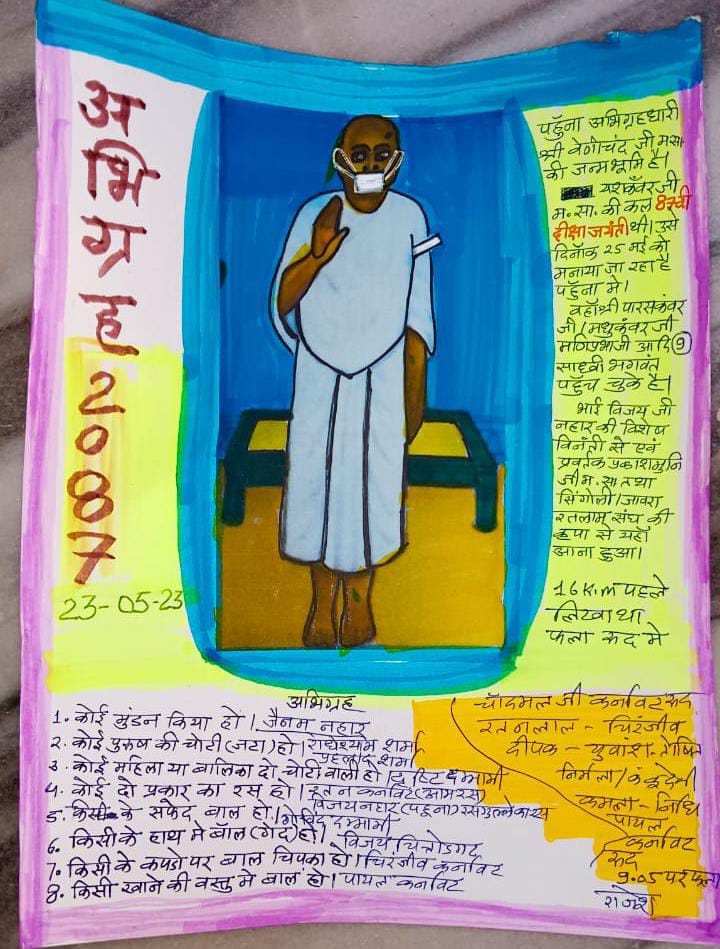 अभिग्रह
2087
23-05-23
पहुँना अभिग्रहधारी
श्री वेणीचंद जी मसा
की जन्मभूमि है।
यशकँवर जी
म.सा. की कल 87वी
दीक्षा जयंती थी। उसे
दिनाँक 25 मई को
मनाया जा रहा है
पहुँना मे।
वहाँ श्री पारसकंवर
जी। मधुकंवर जी
मणिप्रभाजी आदि 9
साध्वी भगवंत
पहुँच चुके है।
भाई विजय जी
नहार की विशेष
विनंती से एवं
प्रवर्तक प्रकाशमुनि
जी म. सा तथा
सिंगोली। जावरा
रतलाम संघ की
कृपा से यहाँ
आना हुआ।
16 K.m पहले
लिखा था
फला रूद मे
अभिग्रह
1. कोई मुंडन किया हो। जैनम नहार
2. कोई पुरुष की चोटी (जटा) हो। राधेश्याम शर्मा
प्रहलाद शर्मा
3. कोई महिला या बालिका दो चोटी वाली हो।
4. कोई दो प्रकार का रस हो। रतन कर्नावट (आमरस)
विजय नहार (पहूना)
5. किसी के सफेद बाल हो। गोविंद दमामी
6. किसी के हाथ मे बॉल (गेंद) हो। विजय चित्तोडगढ
7. किसी के कपडो पर बाल चिपका हो। चिरंजीव कर्नावट
8. किसी खाने की वस्तु मे बाल हो। पायल कर्नावट
चाँदमल जी कर्नावट रूद
रतनलाल - चिरंजीव
दीपक -
निर्मला
कमला - निधि
पायल
कर्नावट
रूद
9.05 पर फला
राजेश